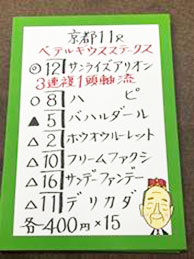 京都11R
ベテルギウスステークス
◎12 サンライズアリオン
3連複1頭軸流
○8 ハピ
▲5 バハルダール
△2 ホウオウルーレット
△10 フリームファクシ
△16 サンデーファンデー
△11 デリカダ
各400円×15